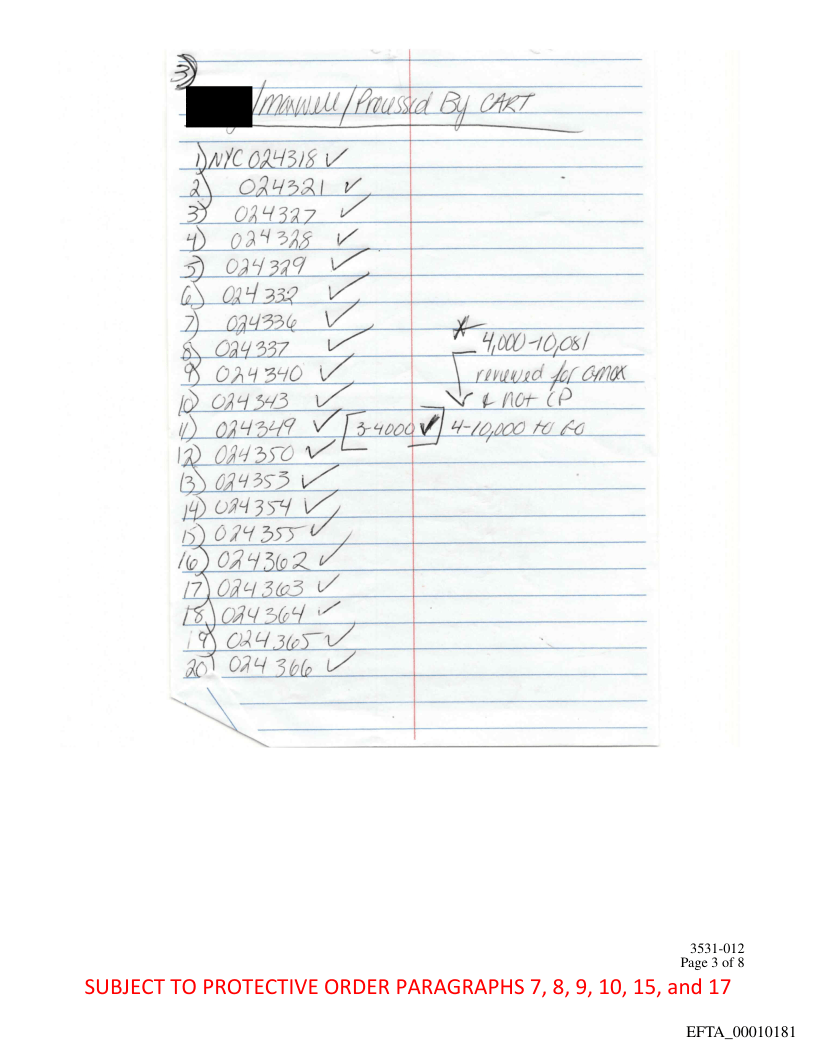 3
/maxwell/Processed By CART
1) NYC 024318 ✓
2) 024321 ✓
3) 024327 ✓
4) 024328 ✓
5) 024329 ✓
6) 024332 ✓
7) 024336 ✓
8) 024337 ✓
9) 024340 ✓
10) 024343 ✓
11) 024349 ✓ [3-4000 ✓]
12) 024350 ✓
13) 024353 ✓
14) 024354 ✓
15) 024355 ✓
16) 024362 ✓
17) 024363 ✓
18) 024364 ✓
19) 024365 ✓
20) 024366 ✓
* 4,000-10,081
reviewed for Gmax
& not CP
4-10,000 to Go
3531-012
Page 3 of 8
SUBJECT TO PROTECTIVE ORDER PARAGRAPHS 7, 8, 9, 10, 15, and 17
EFTA_00010181